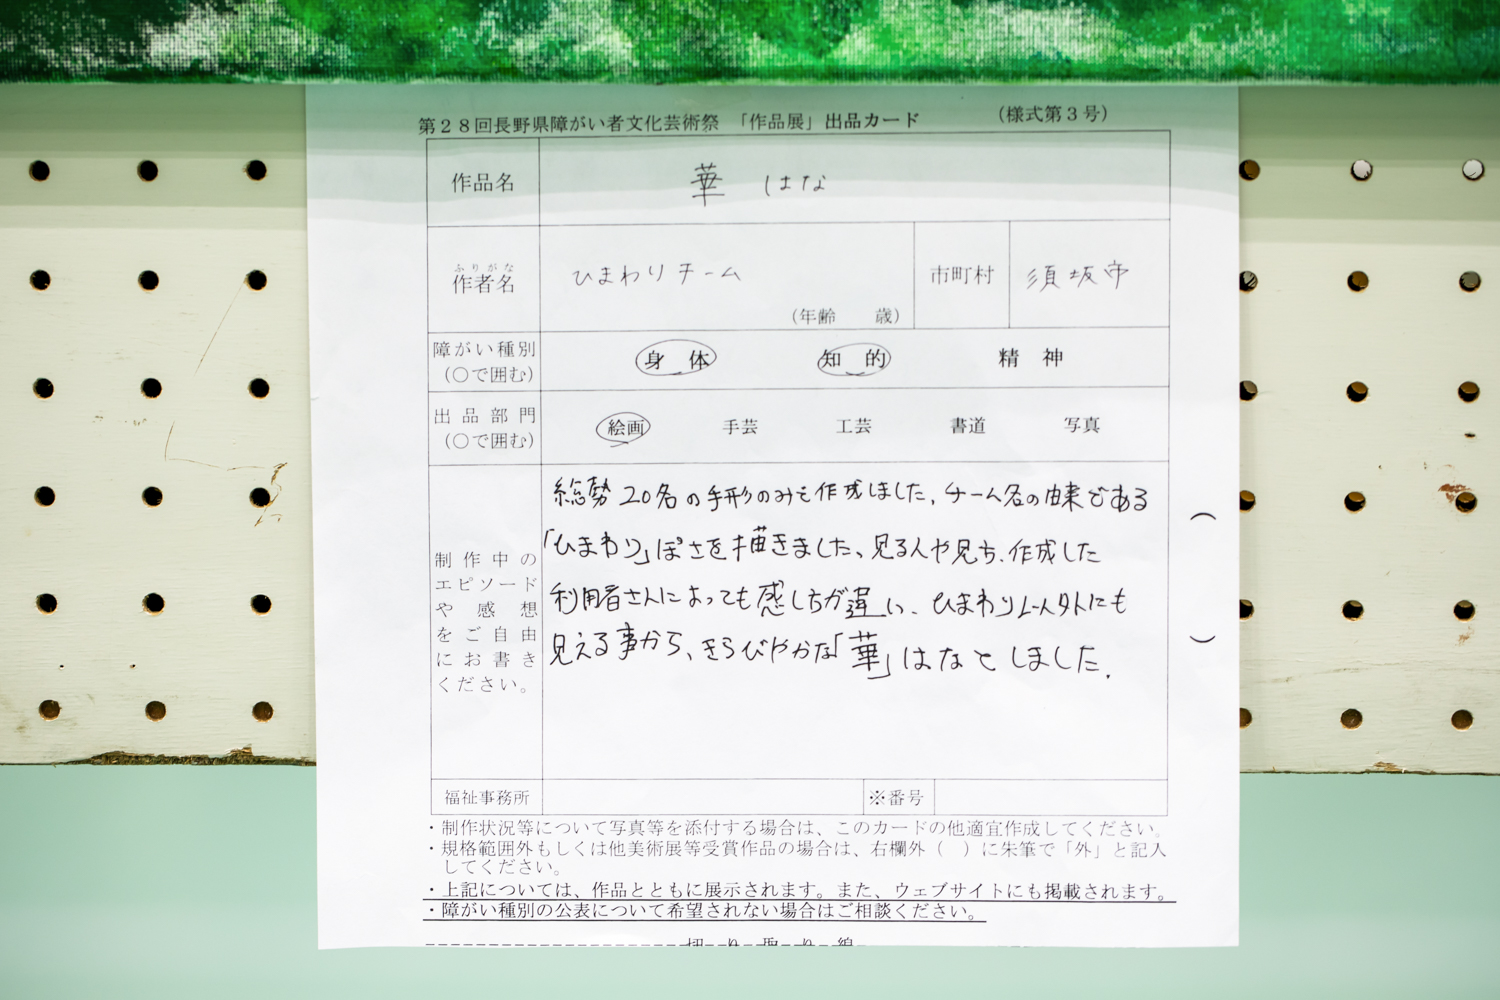 第28回長野県障がい者文化芸術祭 「作品展」出品カード (様式第3号)
作品名 華 はな
ふりがな
作者名 ひまわりチーム (年齢 歳) 市町村 須坂市
障がい種別 身体 知的 精神
(○で囲む)
出品部門 絵画 手芸 工芸 書道 写真
(○で囲む)
制作中の
エピソード
や感想
をご自由
にお書き
ください。
総勢20名の手形のみを作成しました。チーム名の由来である
「ひまわり」ぽさを描きました、見る人や見ち、作成した
利用者さんによっても感じ方が違い、ひまわり以外にも
見える事から、きらびやかな「華」はなとしました。
( )
福祉事務所 ※番号
・制作状況等について写真等を添付する場合は、このカードの他適宜作成してください。
・規格範囲外もしくは他美術展等受賞作品の場合は、右欄外( )に朱筆で「外」と記入
してください。
・上記については、作品とともに展示されます。また、ウェブサイトにも掲載されます。
・障がい種別の公表について希望されない場合はご相談ください。
切り取り線